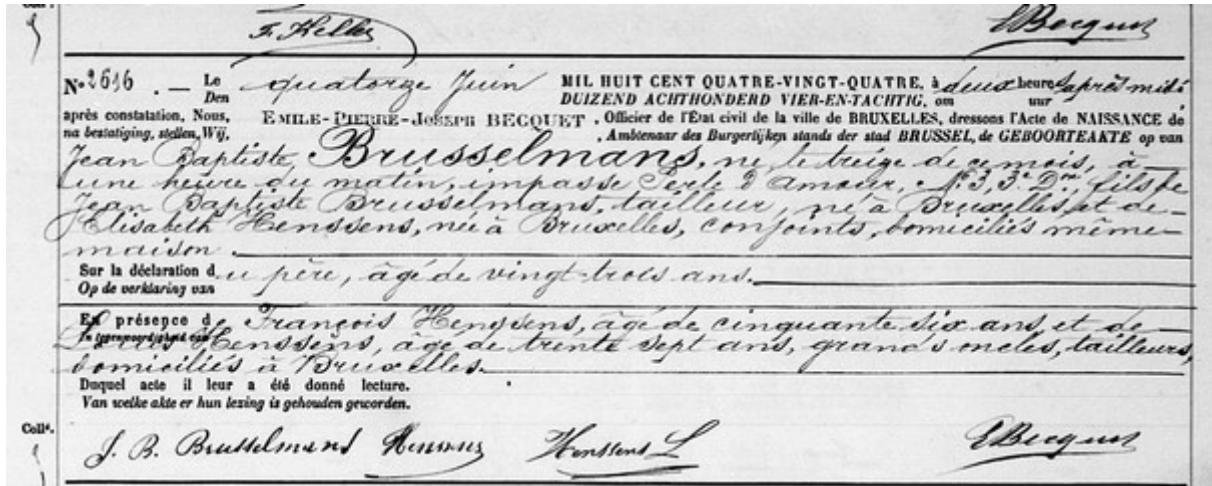 F. Heller
E Becquet
N° 2616. — Le quatorze Juin MIL HUIT CENT QUATRE-VINGT-QUATRE, à deux heures après midi
Den DUIZEND ACHTHONDERD VIER-EN-TACHTIG, om uur
après constatation, Nous, EMILE-PIERRE-JOSEPH BECQUET, Officier de l'État civil de la ville de BRUXELLES, dressons l'Acte de NAISSANCE de
na bestatiging, stellen, Wij, Ambtenaar des Burgerlijken stands der stad BRUSSEL, de GEBOORTEAKTE op van
Jean Baptiste Brusselmans, né le treize de ce mois, à
une heure du matin, impasse Perle d'amour, N° 3, 3e Don, fils de
Jean Baptiste Brusselmans, tailleur, né à Bruxelles, et de
Elisabeth Henssens, née à Bruxelles, conjoints, domiciliés même
maison.
Sur la déclaration du père, âgé de vingt-trois ans.
Op de verklaring van
En présence de François Henssens, âgé de cinquante six ans, et de
In tegenwoordigheid van
Louis Henssens, âgé de trente sept ans, grands oncles, tailleurs,
domiciliés à Bruxelles.
Duquel acte il leur a été donné lecture.
Van welke akte er hun lezing is gehouden geworden.
Collé.
J. B. Brusselmans Henssens Henssens L E Becquet